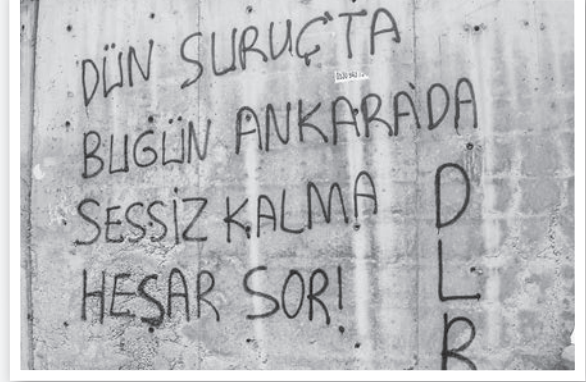 DÜN SURUÇ'TA
BUGÜN ANKARA'DA
SESSİZ KALMA
HESAR SOR!
D
L
B